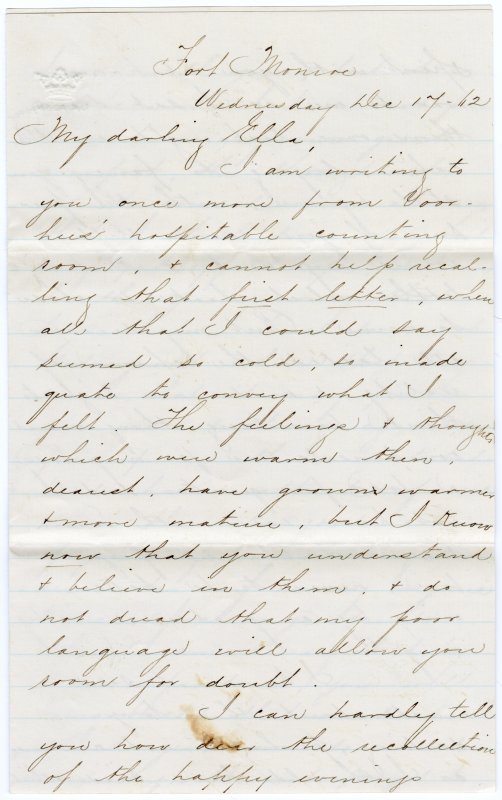 Fort Monroe
Wednesday Dec 17-62
My darling Ella,
I am writing to
you once more from Voor-
hees' hospitable counting
room, & cannot help recal-
ling that first letter, when
all that I could say
seemed so cold, so inade
quate to convey what I
felt. The feelings & thoughts
which were warm then,
dearest, have grown warmer
& more mature, but I know
now that you understand
& believe in them, & do
not dread that my poor
language will allow you
room for doubt.
I can hardly tell
you how dear the recollection
of the happy evenings